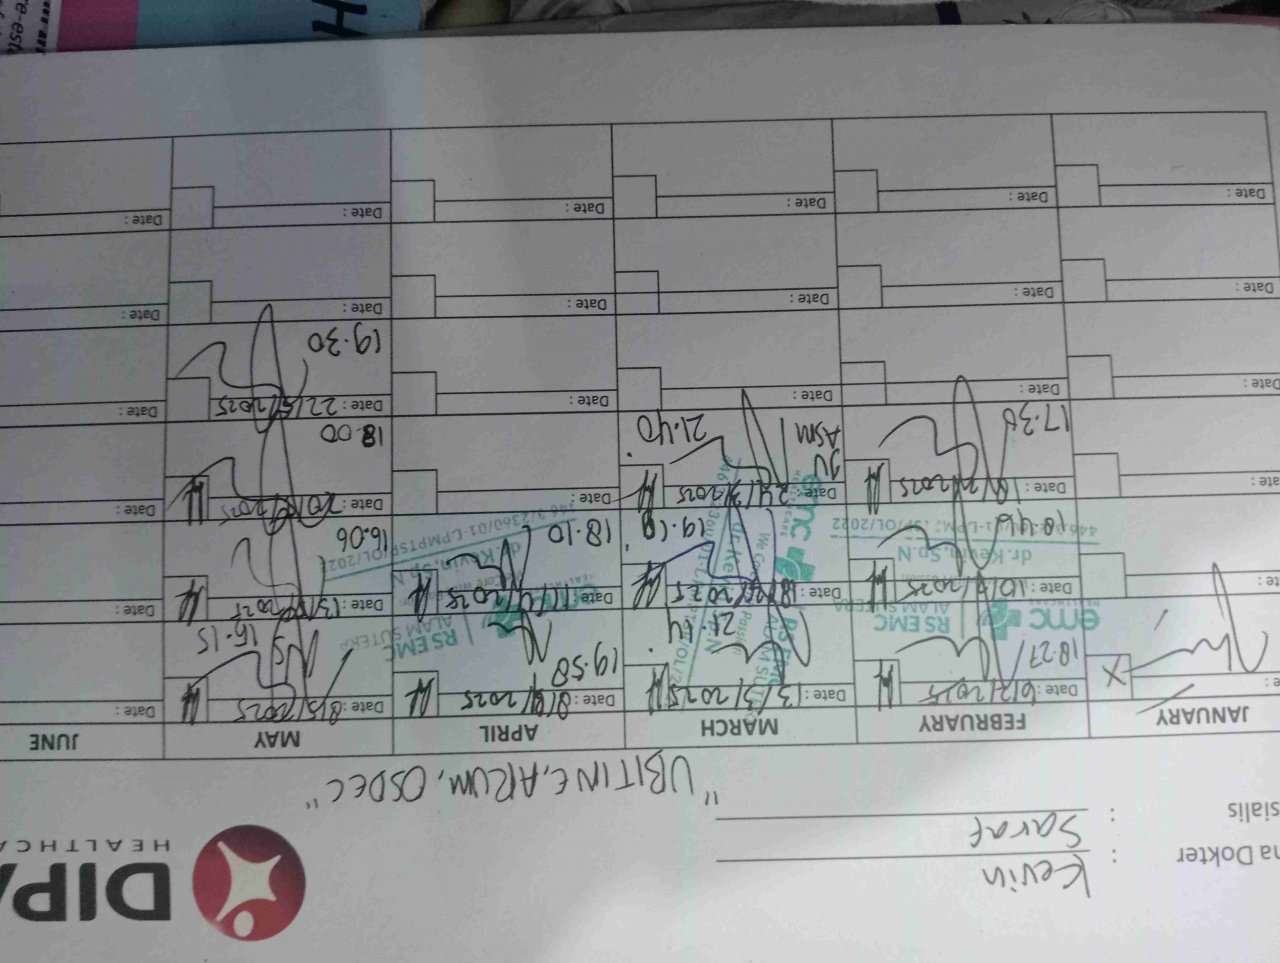 DIPA
HEALTHCA
na Dokter : Kevin
sialis : Saraf
"UBITINE, ARUM, OSDEC"
JANUARY FEBRUARY MARCH APRIL MAY JUNE
Date: 6/2/2025 Date: 13/3/2025 Date: 8/4/2025 Date: 8/5/2025 Date:
18.27 21.14 19.58 16.15
Date: 10/2/2025 Date: 18/3/2025 Date: Date: 13/5/2025 Date:
18.46 19.19 18.10 16.06
Date: 18/2/2025 Date: 24/3/2025 Date: Date: 20/5/2025 Date:
17.30 21.40 18.00
ASM
Date: Date: Date: Date: Date: 22/5/2025 Date:
19.30
Date: Date: Date: Date: Date: Date:
Date: Date: Date: Date: Date: Date:
emc RS EMC
ALAM SUTERA
dr. Kevin, Sp.N
RS EMC
ALAM SUTERA
dr. Kevin, Sp.N